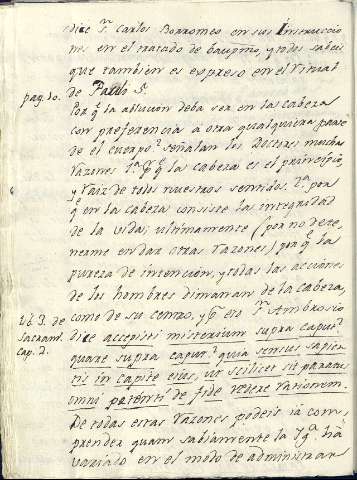 dice Sn. Carlos Borromeo en sus Instruccio
nes en el tratado de baupmo, y todos sabeis
que tambien es expreso en el ritual
pag. 10. de Paulo 5.
Por q.e la ablucion deba ser en la cabeza
con preferencia à otra qualquiera parte
de el cuerpo? señalan los Doctores muchas
razones 1.a pr. q.e la cabeza es el principio,
y raiz de todos nuestros sentidos. 2.a por
q.e en la cabeza consiste la integridad
de la vida; ultimamente (por no dete
nerme en dar otras razones) por q.e la
pureza de intencion, y todas las acciones
de los hombres dimanan de la cabeza,
como de su centro, y pr. eso Sn. Ambrosio
Lib. 3. de Sacram. cap. 1.
dice accepisti misterium supra caput.
quare supra caput? quia sensus sapien
tis in capite eius, ut scilicet sit paratus
omni petenti de fide redere rationem.
De todas estas razones podeis ia com
prender quam sabiamente la Yg.a hà
variado en el modo de administrar